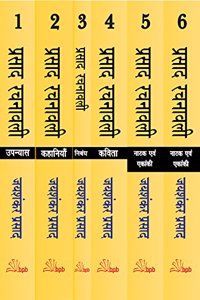 1
प्रसाद रचनावली
उपन्यास
जयशंकर प्रसाद
bpb
2
प्रसाद रचनावली
कहानियाँ
जयशंकर प्रसाद
bpb
3
प्रसाद रचनावली
निबंध
जयशंकर प्रसाद
bpb
4
प्रसाद रचनावली
कविता
जयशंकर प्रसाद
bpb
5
प्रसाद रचनावली
नाटक एवं
एकांकी
जयशंकर प्रसाद
bpb
6
प्रसाद रचनावली
नाटक एवं
एकांकी
जयशंकर प्रसाद
bpb